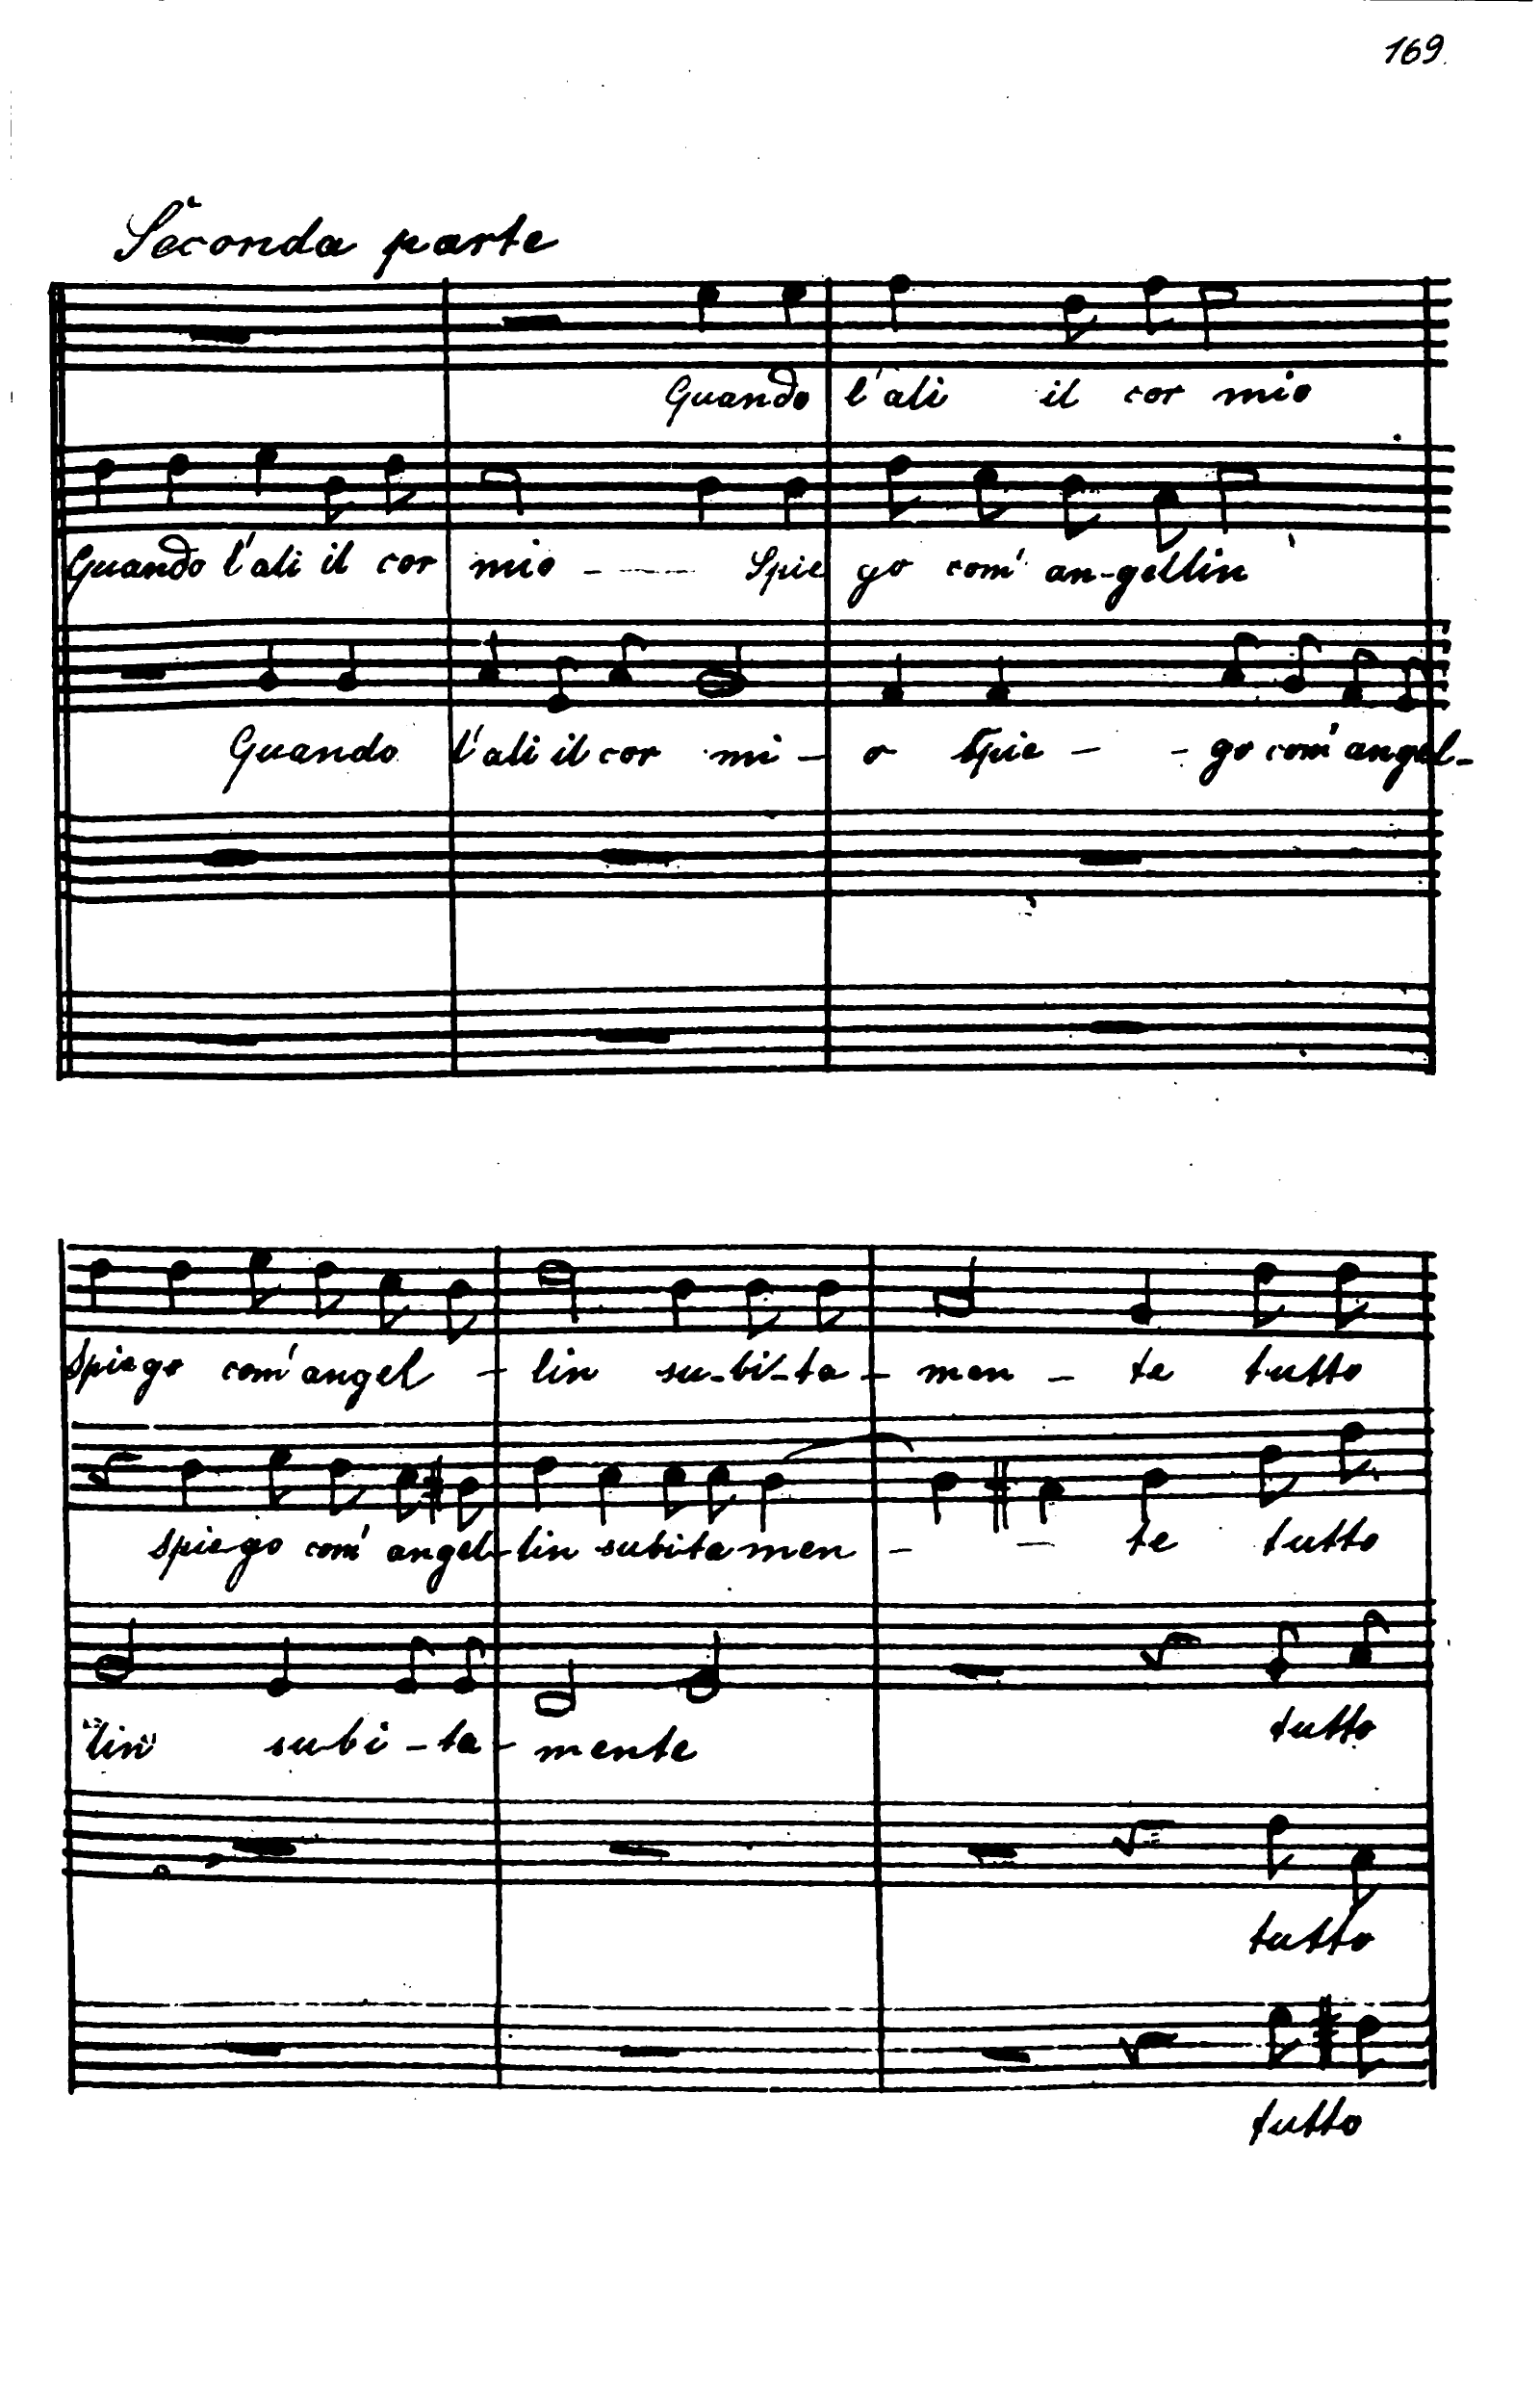 169.
Seconda parte
Quando l'ali il cor mio
Quando l'ali il cor mio - - - - - Spie go com' an-gellin
Quando l'ali il cor mi - o Spie - - go com' angel-
Spiego com' angel - lin su-bi-ta - men - te tutto
Spiego com' angel-lin subitamen - - te tutto
lin subi-ta-mente tutto
tutto
tutto